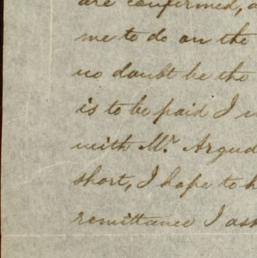 are confirmed, a
me to do on the
no doubt be the
is to be paid I
with Mr. Argud
short, I hope to h
remittance I ass